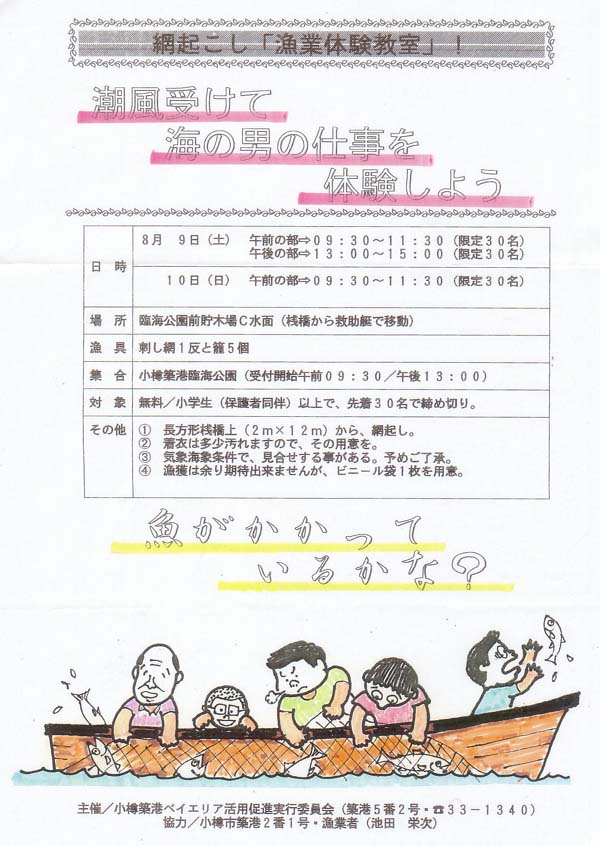 網起こし「漁業体験教室」！
潮風受けて
海の男の仕事を
体験しよう
日時
８月 ９日（土） 午前の部⇒０９：３０～１１：３０（限定３０名）
午後の部⇒１３：００～１５：００（限定３０名）
１０日（日） 午前の部⇒０９：３０～１１：３０（限定３０名）
場所 臨海公園前貯木場Ｃ水面（桟橋から救助艇で移動）
漁具 刺し網１反と籠５個
集合 小樽築港臨海公園（受付開始午前０９：３０／午後１３：００）
対象 無料／小学生（保護者同伴）以上で、先着３０名で締め切り。
その他 ① 長方形桟橋上（２ｍ×１２ｍ）から、網起し。
② 着衣は多少汚れますので、その用意を。
③ 気象海象条件で、見合せする事がある。予めご了承。
④ 漁獲は余り期待出来ませんが、ビニール袋１枚を用意。
魚がかかって
いるかな？
主催／小樽築港ベイエリア活用促進実行委員会（築港５番２号・☎３３－１３４０）
協力／小樽市築港２番１号・漁業者（池田 栄次）